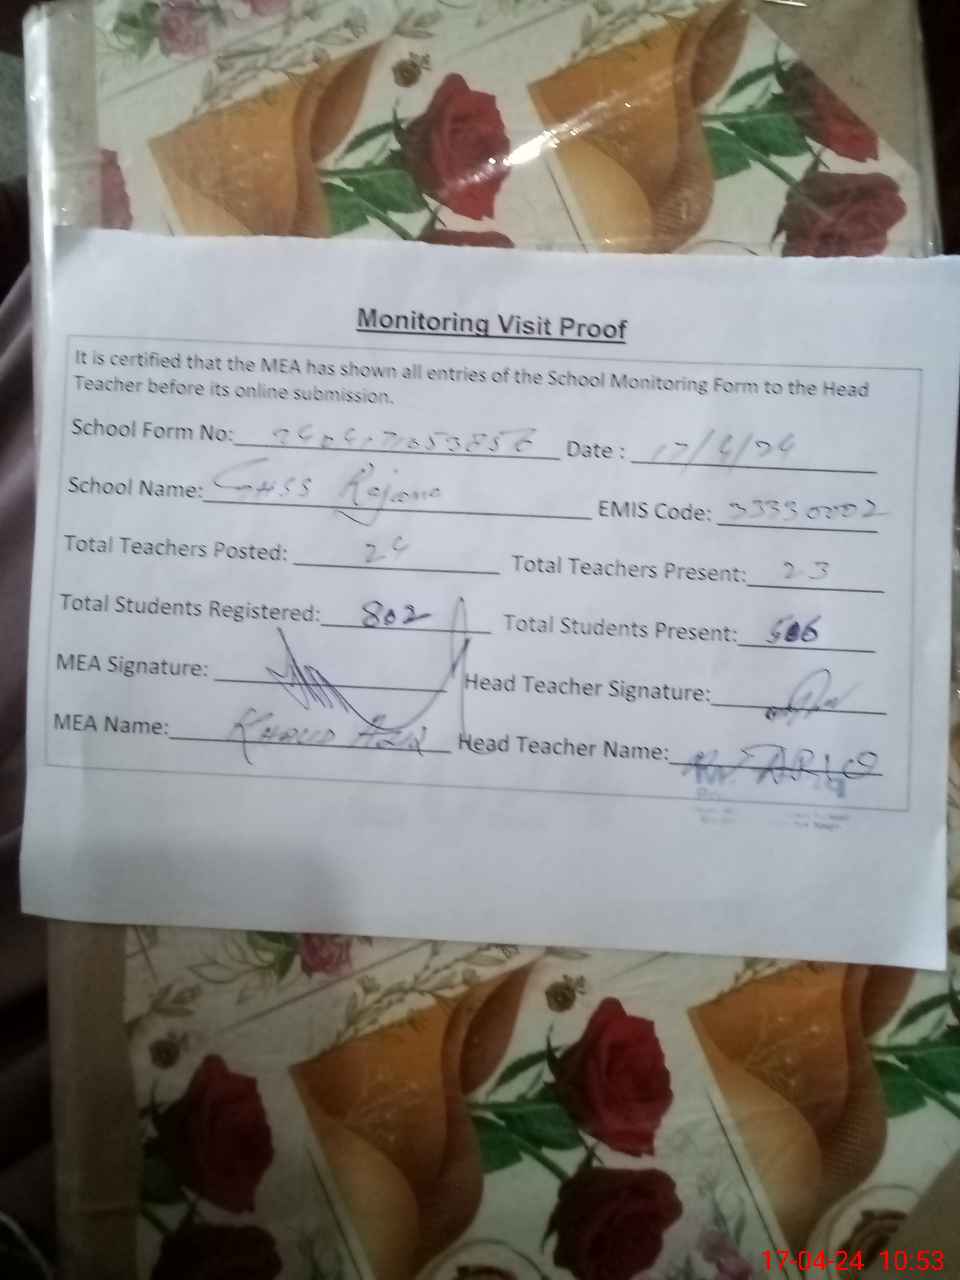 Monitoring Visit Proof
It is certified that the MEA has shown all entries of the School Monitoring Form to the Head
Teacher before its online submission.
School Form No: Date : 17/4/24
School Name: GHSS Rojana EMIS Code: 33330002
Total Teachers Posted: 24 Total Teachers Present: 23
Total Students Registered: 802 Total Students Present: 506
MEA Signature: Head Teacher Signature:
MEA Name: Khalid Head Teacher Name: TARIQ
17-04-24 10:53